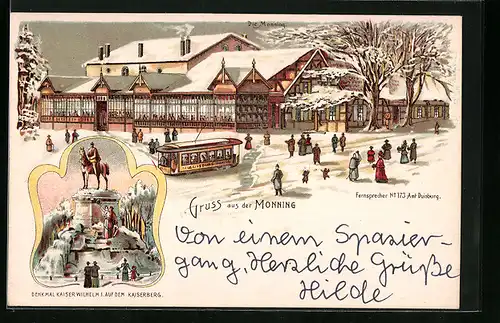 Die Monning
Fernsprecher No 173 Amt Duisburg.
Gruss aus der Monning
Von einem Spazier-
gang, Herzliche Grüße
Hilde
DENKMAL KAISER WILHELM I. AUF DEM KAISERBERG.